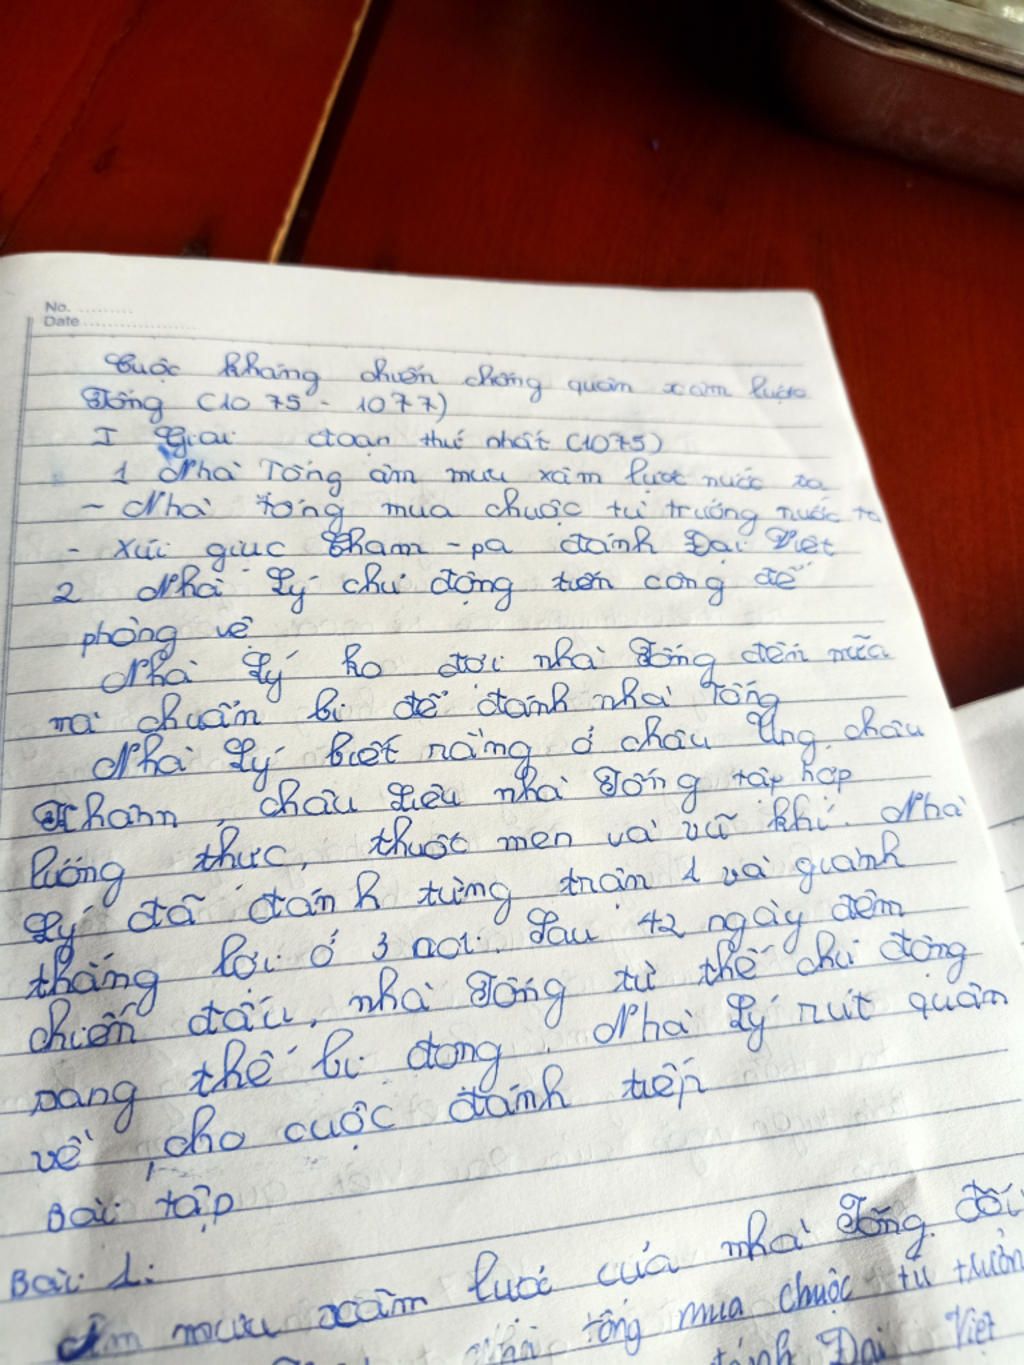 No. ..........
Date ....................
Cuộc kháng chiến chống quân xâm lược
Tống (1075 - 1077)
I Giai đoạn thứ nhất (1075)
1 Nhà Tống âm mưu xâm lược nước ta
- Nhà tống mua chuộc tù trưởng nước ta
- xúi giục Cham-pa đánh Đại Việt
2 Nhà Lý chủ động tiến công để
phòng vệ
Nhà Lý ko đợi nhà Tống đến nữa
mà chuẩn bị để đánh nhà Tống
Nhà Lý biết rằng ở châu Ung, châu
Khâm, châu Liêu nhà Tống tập hợp
lương thực, thuốc men và vũ khí. Nhà
Lý đã đánh từng trận 1 và giành
thắng lợi ở 3 nơi. Sau 42 ngày đêm
chiến đấu, nhà Tống từ thế chủ động
sang thế bị động. Nhà Lý rút quân
về, cho cuộc đánh tiếp
Bài tập
Bài 1:
Âm mưu xâm lược của nhà Tống. đối
nhà tống mua chuộc tù trưởng
đánh Đại Việt